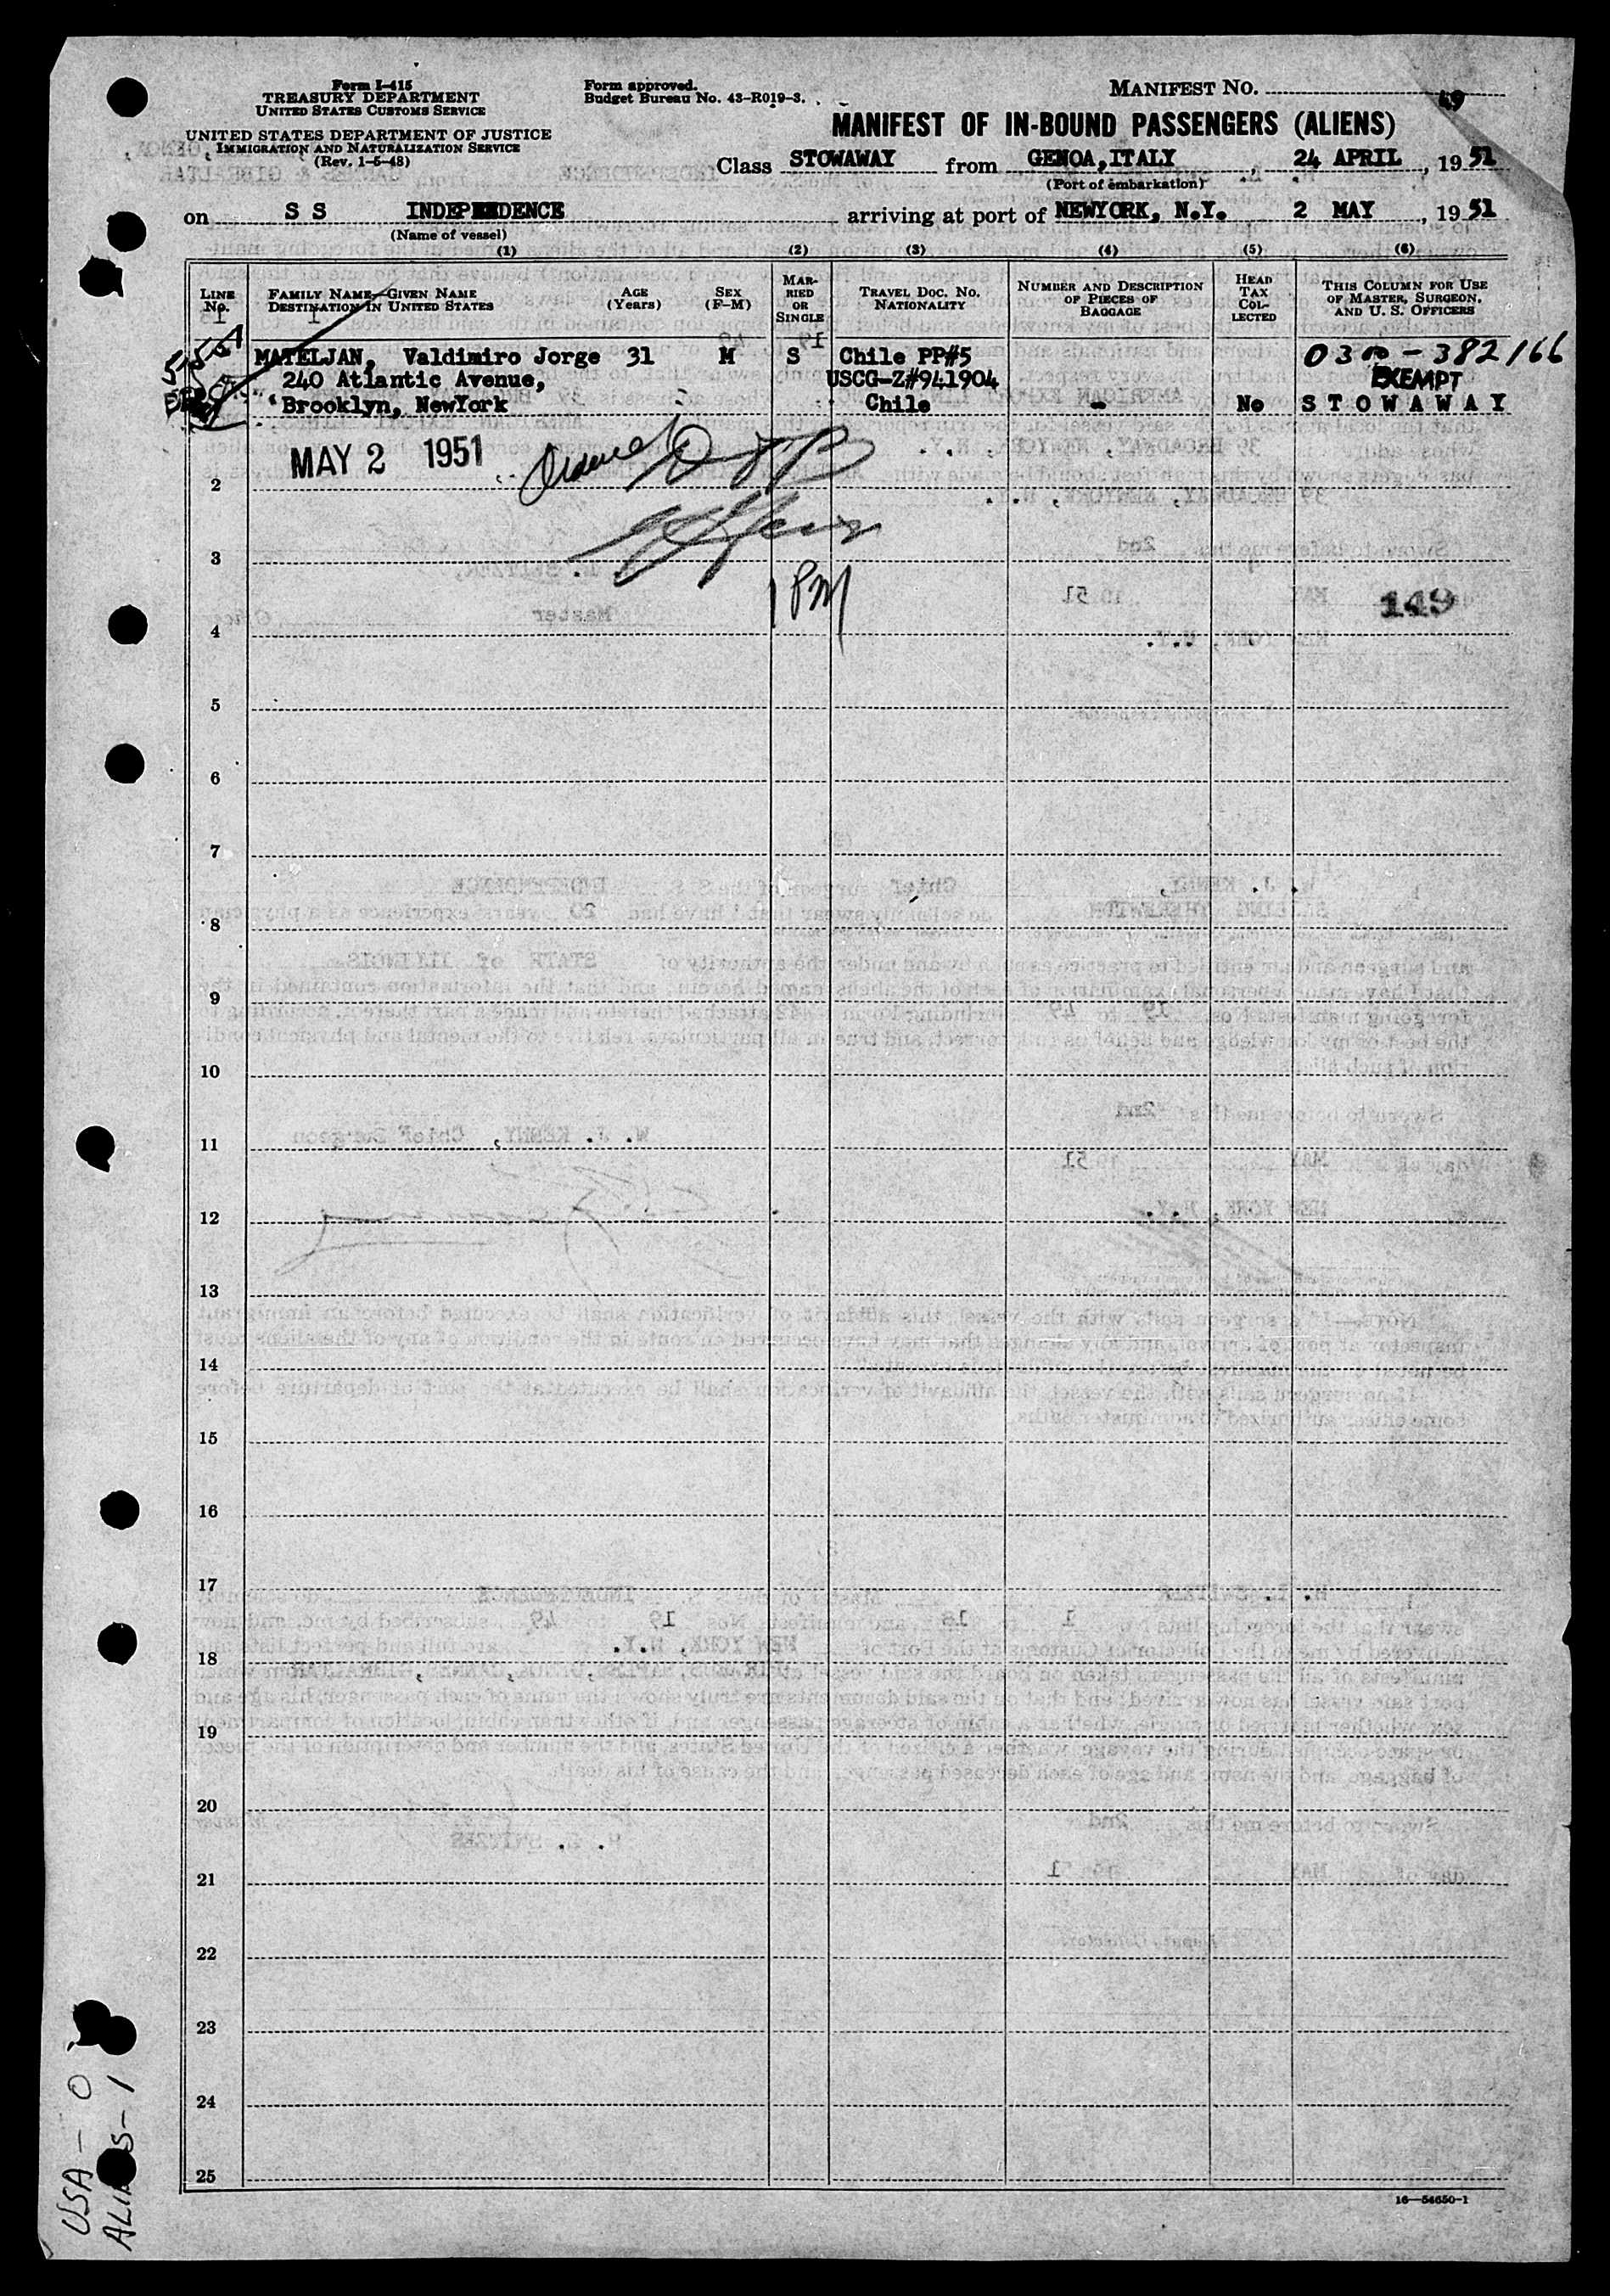 Form I-415
TREASURY DEPARTMENT
UNITED STATES CUSTOMS SERVICE
UNITED STATES DEPARTMENT OF JUSTICE
IMMIGRATION AND NATURALIZATION SERVICE
(Rev. 1-5-48)
Form approved.
Budget Bureau No. 43-R019-3.
MANIFEST NO. 49
MANIFEST OF IN-BOUND PASSENGERS (ALIENS)
Class STOWAWAY from GENOA, ITALY, 24 APRIL, 1951
(Port of embarkation)
on S S INDEPENDENCE arriving at port of NEWYORK, N.Y. 2 MAY, 1951
(Name of vessel)
(1) (2) (3) (4) (5) (6)
LINE No. FAMILY NAME—GIVEN NAME DESTINATION IN UNITED STATES AGE (Years) SEX (F-M) MARRIED OR SINGLE TRAVEL DOC. NO. NATIONALITY NUMBER AND DESCRIPTION OF PIECES OF BAGGAGE HEAD TAX COLLECTED THIS COLUMN FOR USE OF MASTER, SURGEON, AND U. S. OFFICERS
MATELJAN, Valdimiro Jorge 31 M S Chile PP#5 0300-382166
240 Atlantic Avenue, USCG-Z#941904 EXEMPT
Brooklyn, NewYork Chile - No STOWAWAY
MAY 2 1951
2
3
1 PM
149
4
5
6
7
8
9
10
11
12
13
14
15
16
17
18
19
20
21
22
23
24
25
16—54650-1
USA - 0
ALIENS - 1